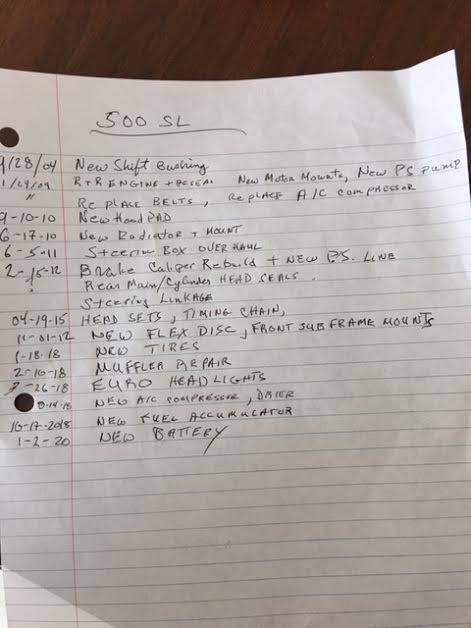 500 SL
9/28/04 New Shift Bushing
1/09/09 R+R ENGINE + RESEAL New Motor Mounts, New PS pump
" Re PLACE BELTS, RePLACE A/C compressor
9-10-10 New Hood PAD
6-17-10 New Radiator + MOUNT
6-5-11 Steerin BOX OVER HAUL
2-15-12 Brake Caliper Rebuild + NEW P.S. LINE
Rear Main/Cylinder HEAD SEALS
Steering LINKAGE
04-19-15 HEAD SETS, TIMING CHAIN,
11-01-12 NEW FLEX DISC, FRONT SUB FRAME MOUNTS
1-18-18 NEW TIRES
2-10-18 MUFFLER REPAIR
-26-18 EURO HEADLIGHTS
NEW A/C COMPRESSOR, DRIER
10-17-2018 NEW FUEL ACCUMULATOR
1-2-20 NEW BATTERY